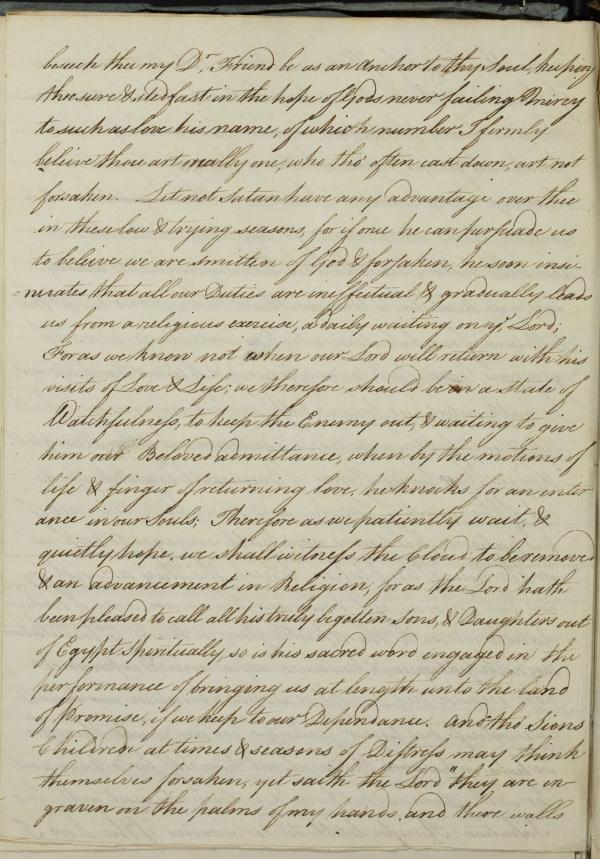 beseech thee my Dr. Friend be as an Anchor to thy Soul, keeping
thee sure & stedfast in the hope of Gods never failing Mercy
to such as love his name, of which number I firmly
beleive thou art really one, who tho' often cast down, art not
forsaken. Let not Satan have any advantage over thee
in these low & trying seasons, for if once he can persuade us
to beleive we are smitten of God & forsaken, he soon insi-
=nuates that all our Duties are ineffectual & gradually leads
us from a religious exercise, a daily waiting on ye. Lord;
For as we know not when our Lord will return with his
visits of Love & Life; we therefore should be in a state of
Watchfulness, to keep the Enemy out, & waiting to give
him our Beloved admittance, when by the motions of
life & finger of returning love, he knocks for an enter
ance in our Souls; Therefore as we patiently wait, &
quietly hope, we shall witness the Cloud to be removed
& an advancement in Religion, for as the Lord hath
been pleased to call all his truly begotten sons, & Daughters out
of Egypt spiritually, so is his sacred word engaged in the
performance of bringing us at length unto the land
of Promise, if we keep to our Dependance. And tho' Sions
Children at times & seasons of Distress may think
themselves forsaken, yet saith the Lord "they are in-
graven on the palms of my hands, and there walls